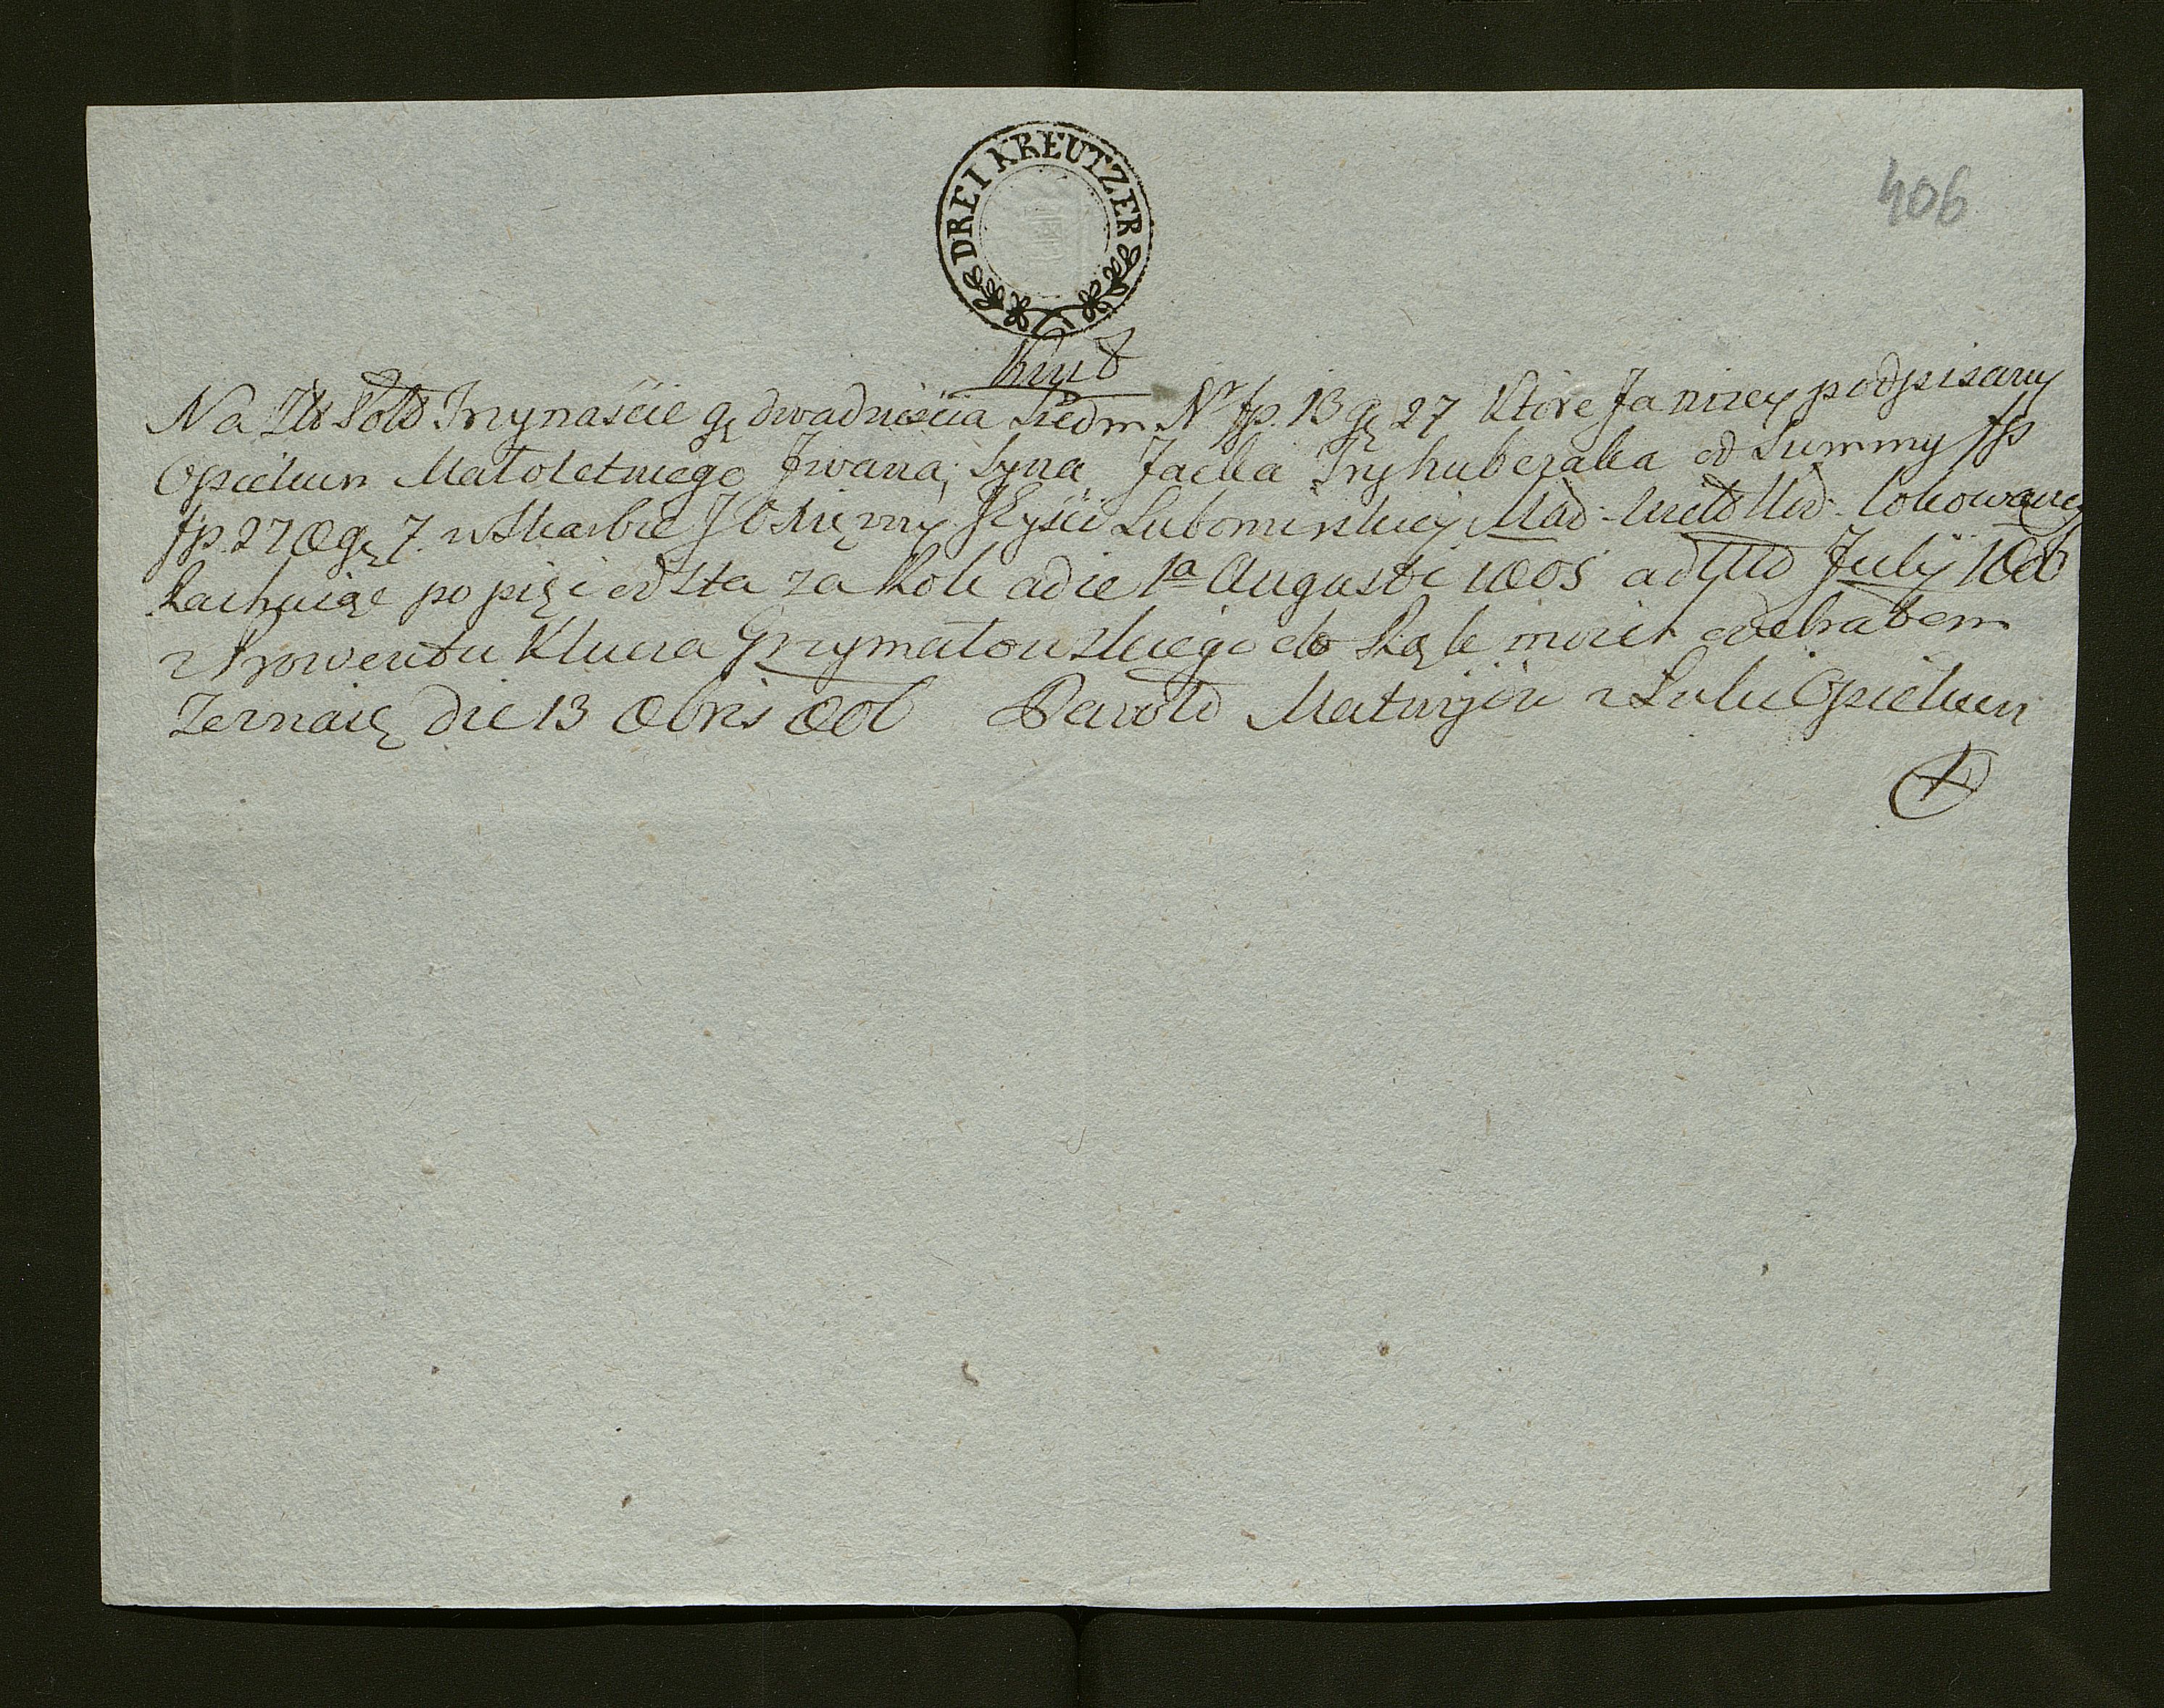 DREI KREUTZER
406
Kwit
Na Zło Polo Trzynaście gę dwadzieścia Siedm Nr fp. 13 gę 27 Które Ja niżey podpisany
Opiekun Małoletniego Jwana, Syna Jacka Tryhubczaka od Summy fp
fp. 278 gę 7. w Skarbie JO Xiężny JEyści Lubomirskiey lokowaney
Rachuiąc po pięć od Sta za Rok a die 1a Augusti 1805 ad Ult July 1806
z Prowentu Klucza Grzymałowskiego do Rąk moich odebrałem
die 13 8bris 806 Pawło Matwijów z Luki Opiekun